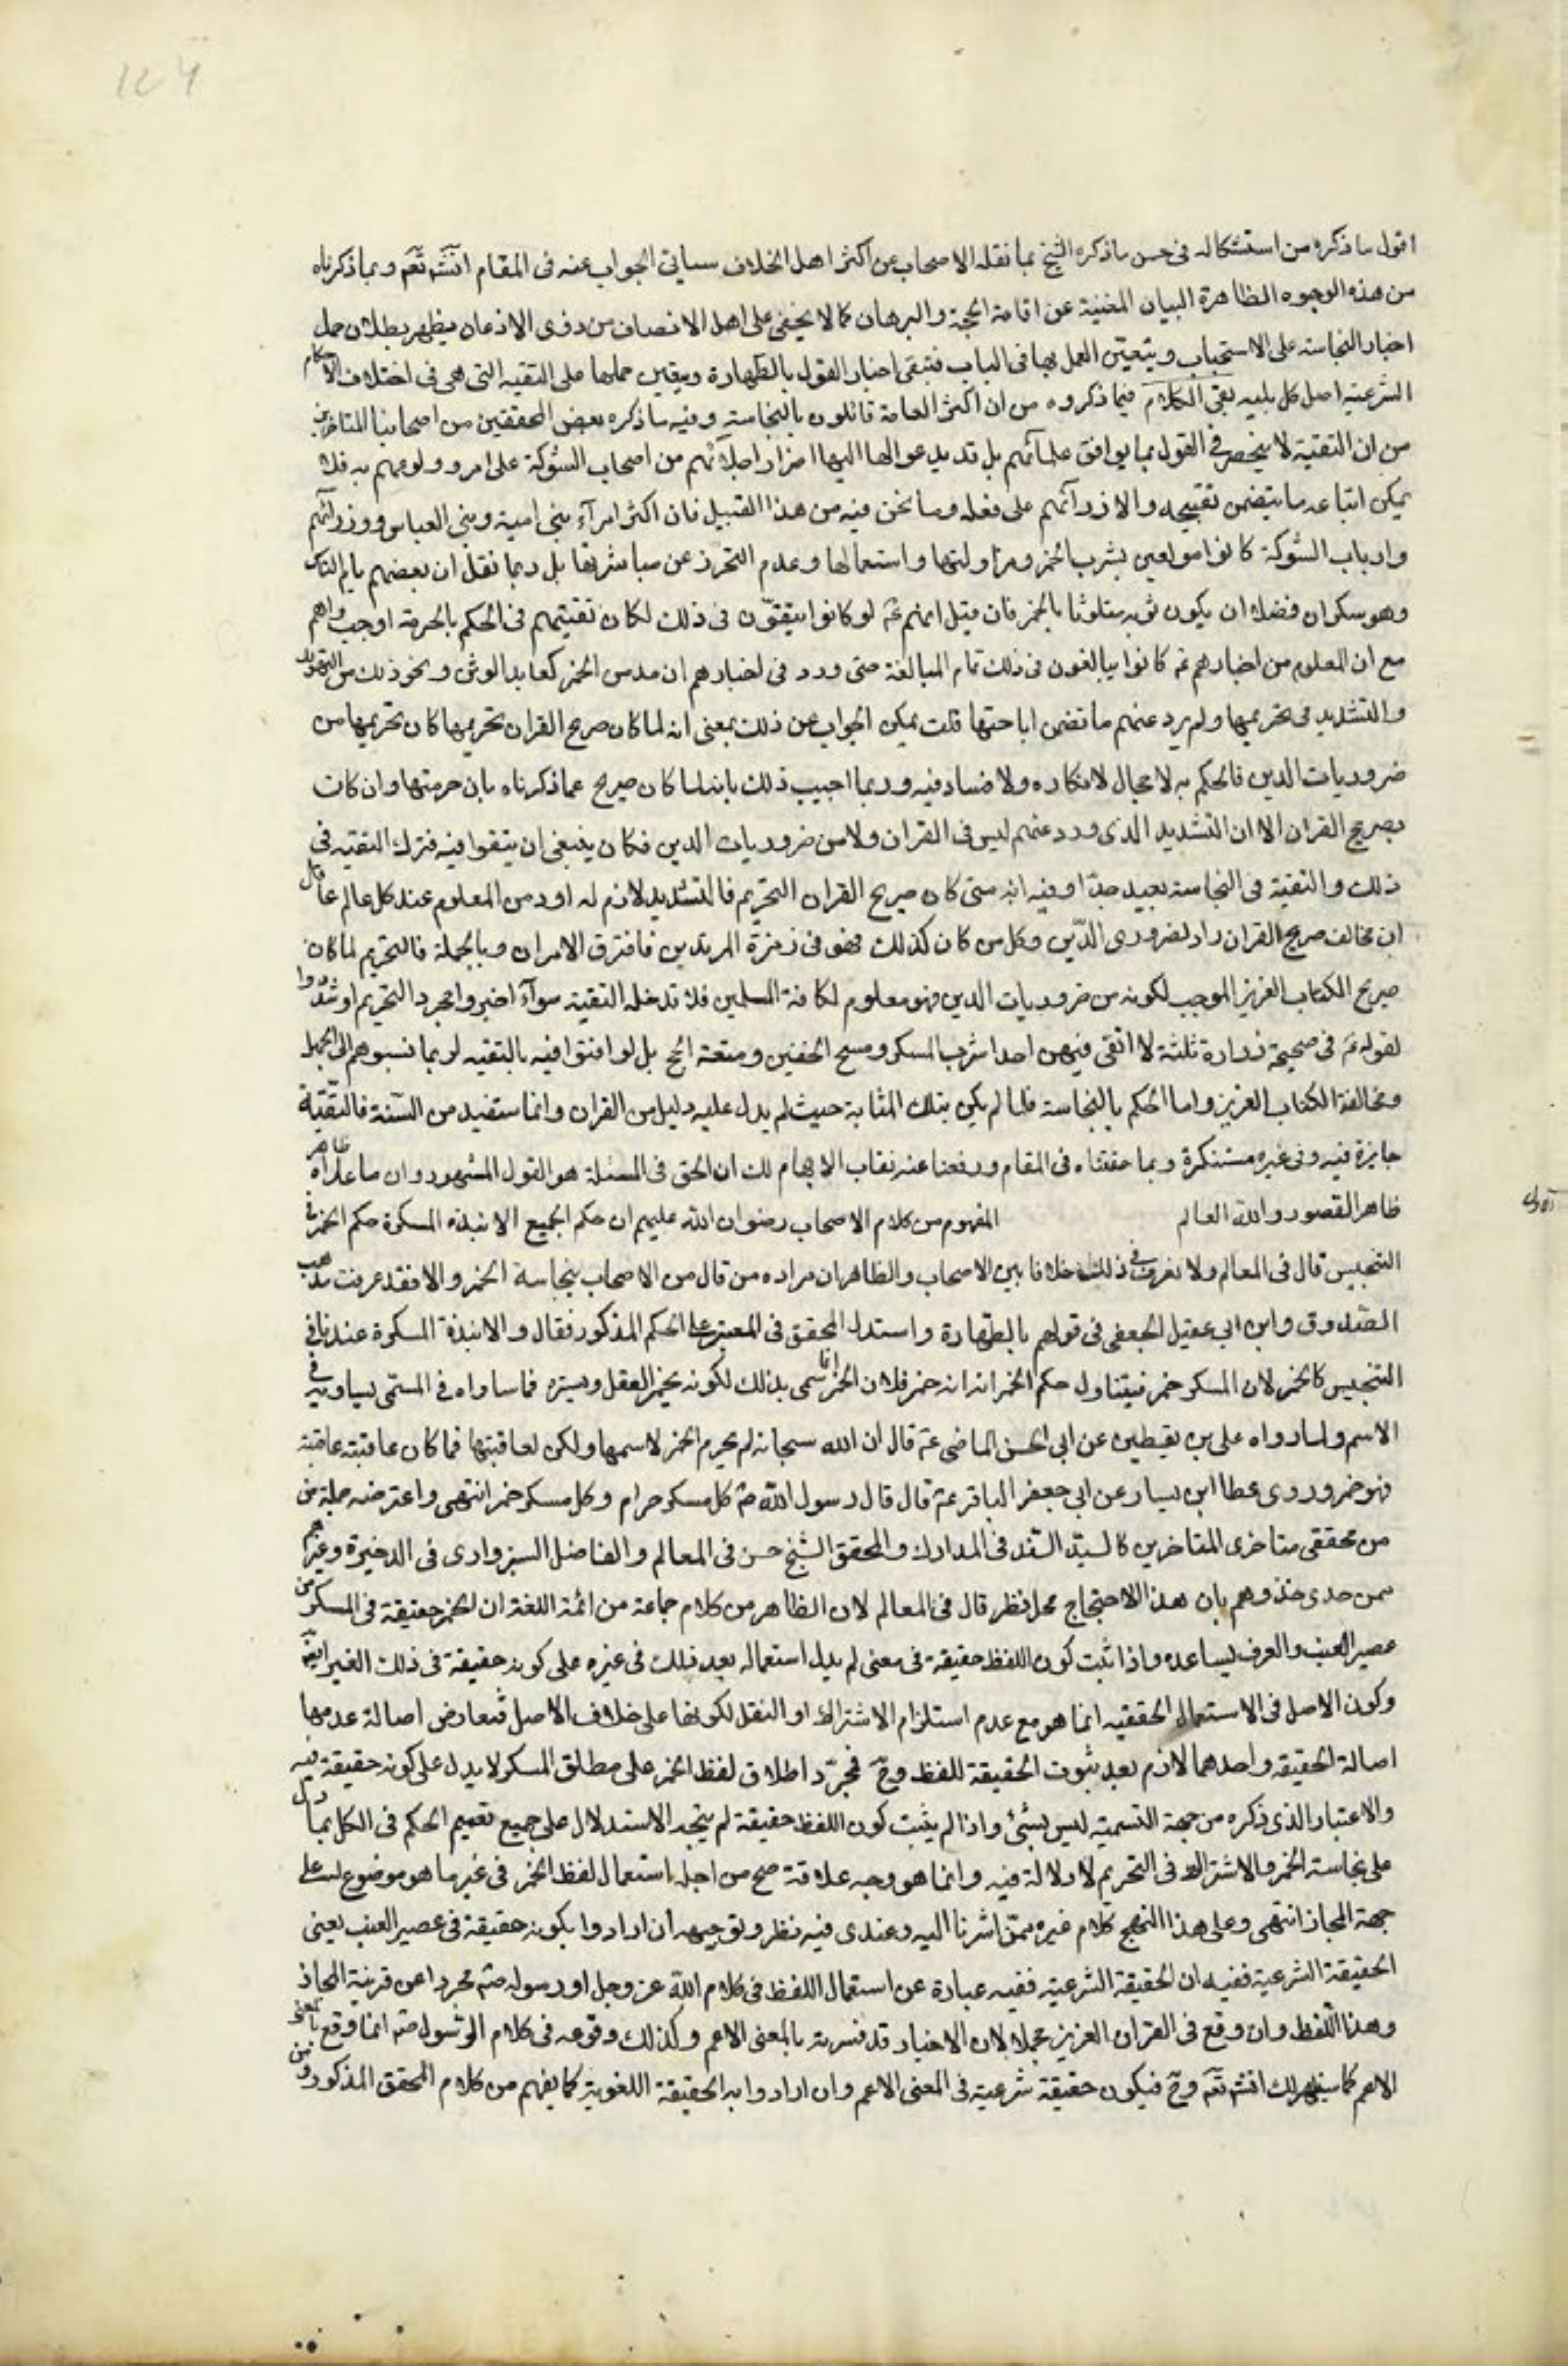 124
اقول ما ذكره من استشكاله فى حسن ما ذكره الشيخ بما نقله الاصحاب عن اكثر اهل الخلاف سياتى الجواب عنه فى المقام انشه تعم وبما ذكرناه
من هذه الوجوه الظاهرة البيان المغنية عن اقامة الحجة والبرهان كما لا يخفى على اهل الانصاف من ذوى الاذعان يظهر بطلان حمل
اخبار النجاسة على الاستحباب ويتعين العمل بها فى الباب فتبقى اخبار القول بالطهارة ويتعين حملها على التقيه التى هى فى اختلاف الاحكام
الشرعية اصل كل بليه بقى الكلام فيما ذكروه من ان اكثر العامة قائلون بالنجاسة وفيه ما ذكره بعض المحققين من اصحابنا المتاخرين
من ان التقية لا ينحصر فى القول بما يوافق علمائهم بل قد يدعو الها اليها اصرار اجلائهم من اصحاب الشوكة على امر وولوعهم به فلا
يمكن اتباعه ما يتضمن تقبيحه والازدرآئهم على فعله وما نحن فيه من هذا القبيل فان اكثر امرآء بنى امية وبنى العباس ووزرآئهم
وارباب الشوكة كانوا مولعين بشرب الخمر ومزاولتها واستعمالها وعدم التحرز عن مباشرتها بل ربما نقل ان بعضهم يام الناس
وهو سكران فضلا ان يكون ثوبه متلوثا بالخمر فان قيل انهم ع لو كانوا يتقون فى ذلك لكان تقيتهم فى الحكم بالحرمة اوجب واهم
مع ان المعلوم من اخبارهم ع كانوا يبالغون فى ذلك تمام المبالغة حتى ورد فى اخبارهم ان مدمن الخمر كعابد الوثن ونحو ذلك من التهديد
والتشديد فى تحريمها ولم يرد عنهم ما تضمن اباحتها قلت يمكن الجواب عن ذلك بمعنى انه لما كان صريح القران تحريمها كان تحريمها من
ضروريات الدين فالحكم به لا مجال لانكاره ولا فساد فيه وربما اجيب ذلك بانه لما كان صريح عما ذكرناه بان حرمتها وان كانت
بصريح القران الا ان التشديد الذى ورد عنهم ليس فى القران ولا من ضروريات الدين فكان ينبغى ان يتقوا فيه فترك التقيه فى
ذلك والتقية فى النجاسة بعيد جدا اوفيه انه متى كان صريح القران التحريم فالتشديد لازم له اومن المعلوم عند كل عالم عاقل
ان مخالف صريح القران راد لضرورى الدين وكل من كان كذلك فهو فى زمرة المرتدين فافترق الامران وبالجملة فالتحريم لما كان
صريح الكتاب العزيز الموجب لكونه من ضروريات الدين فهو معلوم لكافة المسلمين فلا تدخله التقية سوآء اخبروا بمجرد التحريم او شددوا
لقوله ع فى صحيحة زرارة ثلثة لا اتقى فيهن احدا شرب المسكر ومسح الخفين ومتعة الحج بل لو افتوا فيه بالتقيه لربما نسبوهم الى الجهل
ومخالفة الكتاب العزيز واما الحكم بالنجاسة فلما لم يكن بتلك المثابة حيث لم يدل عليه دليل من القران وانما استفيد من السنة فالتقية
جايزة فيه وفى غيره مستنكرة وبما حققناه فى المقام ورفعنا عنه نقاب الابهام ظاهر لك ان الحق فى المسئلة هو القول المشهور وان ما عداه
ظاهر القصور والله العالم المفهوم من كلام الاصحاب رضوان الله عليهم ان حكم الجميع الانبذه المسكرة حكم الخمر فى
التنجيس قال فى المعالم ولا نعرف فى ذلك خلافا بين الاصحاب والظاهر ان مراده من قال من الاصحاب بنجاسة الخمر والا فقد عرفت مذهب
الصدوق وابن ابى عقيل الجعفى فى قولهم بالطهارة واستدل المحقق فى المعتبر على الحكم المذكور فقال والانبذة المسكرة عندنا فى
التنجيس كالخمر لان المسكر خمر فيتناول حكم الخمر انه انه خمر فلان الخمر انما سمى بذلك لكونه يخمر العقل ويستره فما ساواه فى المسمى يساويه فى
الاسم ولما رواه على بن يقطين عن ابى الحسن الماضى ع قال ان الله سبحانه لم يحرم الخمر لاسمها ولكن لعاقبتها فما كان عاقبته عاقبة
فهو خمر وروى عطا ابن يسار عن ابى جعفر الباقر ع قال قال رسول الله ص كل مسكر حرام وكل مسكر خمر انتهى واعترضه جملة من
من محققى متاخرى المتاخرين كالسيد السند فى المدارك والمحقق الشيخ حسن فى المعالم والفاضل السبزوارى فى الذخيرة وغيرهم
ممن حدى حذوهم بان هذا الاحتجاج محل نظر قال فى المعالم لان الظاهر من كلام جماعة من ائمة اللغة ان الخمر حقيقة فى المسكر من
عصير العنب والعرف يساعده واذا ثبت كون اللفظ حقيقة فى معنى لم يدل استعماله بعد ذلك فى غيره على كونه حقيقة فى ذلك الغير ايضا
وكون الاصل فى الاستعمال الحقيقيه انما هو مع عدم استلزام الاشتراك او النقل لكونها على خلاف الاصل فتعارض اصالة عدمها
اصالة الحقيقه واحدهما لازم بعد ثبوت الحقيقة للفظ وح فمجرد اطلاق لفظ الخمر على مطلق المسكر لا يدل على كونه حقيقة فيه
والاعتبار الذى ذكره من جهة التسمية ليس بشئ واذا لم يثبت كون اللفظ حقيقة لم يتجه الاستدلال على جميع تعميم الحكم فى الكل بما دل
على نجاسة الخمر والاشتراك فى التحريم لا دلالة فيه وانما هو وجه علاقة صح من اجله استعمال لفظ الخمر فى غير ما هو موضوع له على
جهة المجاز انتهى وعلى هذا النهج كلام غيره ممن اشرنا اليه وعندى فيه نظر وتوجيهه ان ارادوا بكونه حقيقة فى عصير العنب يعنى
الحقيقة الشرعية ففيه ان الحقيقة الشرعية ففيه عبارة عن استعمال اللفظ فى كلام الله عز وجل او رسوله ص مجردا عن قرينة المجاز
وهذا اللفظ وان وقع فى القران العزيز مجملا لان الاخبار قد فسرته بالمعنى الاعم وكذلك وقوعه فى كلام الرسول ص انما وقع بالمعنى
الاعم كما سيظهر لك انشه تعم وح فيكون حقيقة شرعية فى المعنى الاعم وان ارادوا به الحقيقة اللغوية كما يفهم من كلام المحقق المذكور